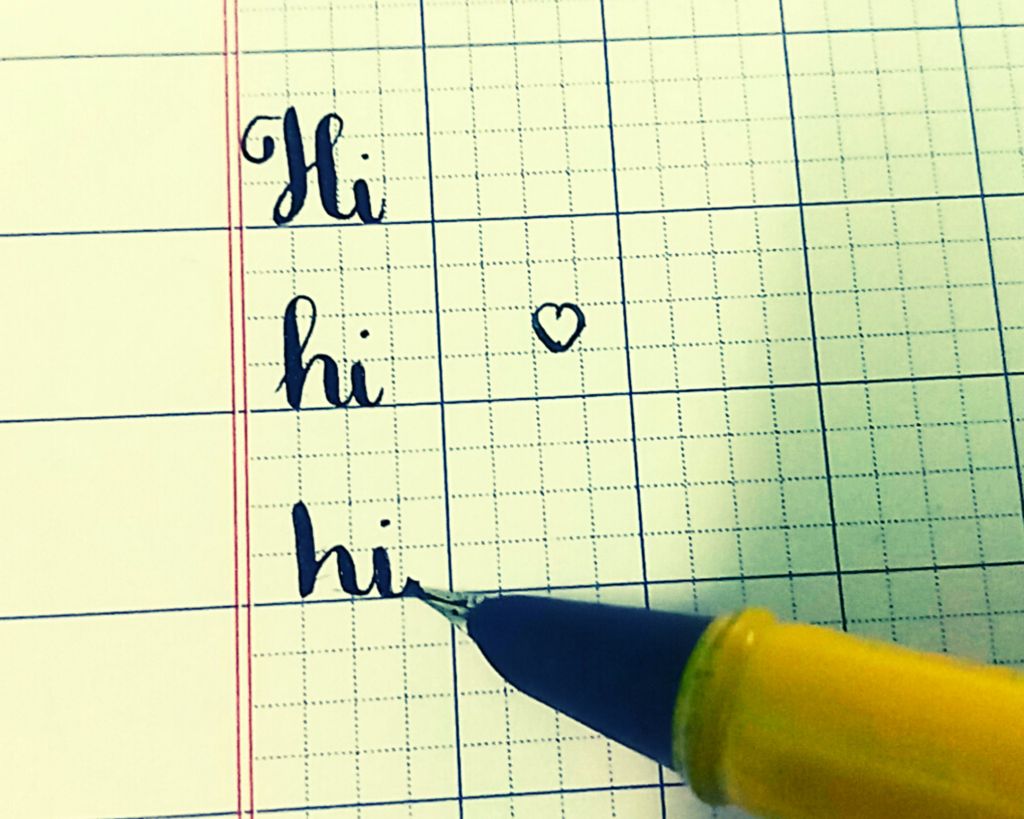 Hi
hi ♡
hi